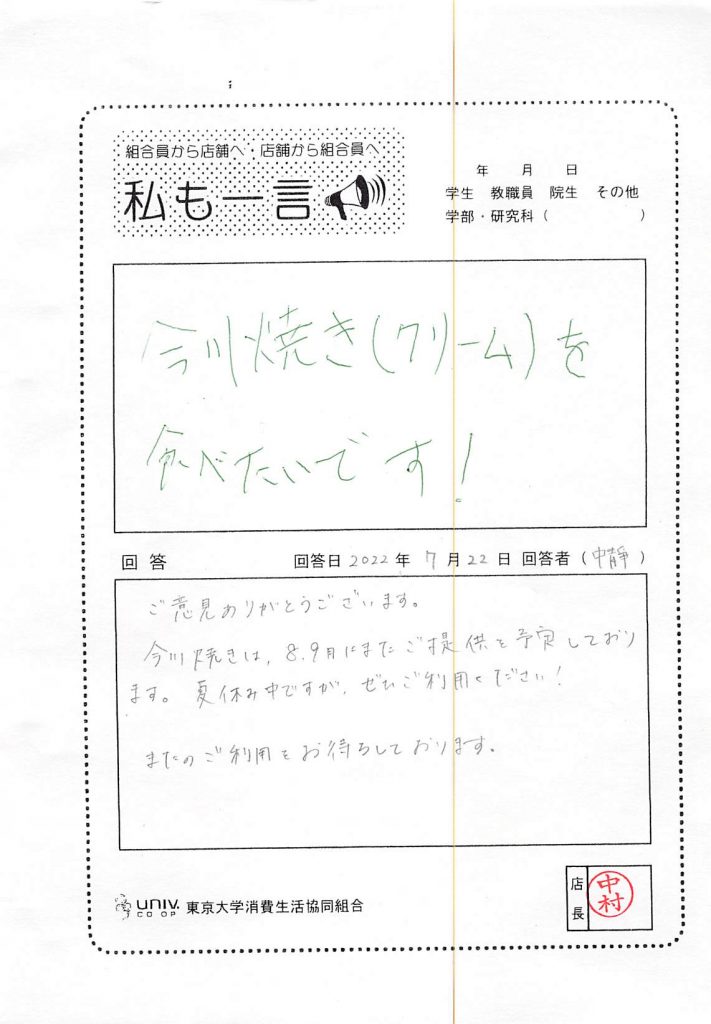 組合員から店舗へ・店舗から組合員へ
私も一言
年 月 日
学生 教職員 院生 その他
学部・研究科（ ）
今川焼き(クリーム)を
食べたいです！
回答 回答日 2022年 7月22日 回答者（中静）
ご意見ありがとうございます。
今川焼きは、8.9月にまたご提供を予定しており
ます。夏休み中ですが、ぜひご利用ください！
またのご利用をお待ちしております。
店長 中村
UNIV. CO-OP 東京大学消費生活協同組合